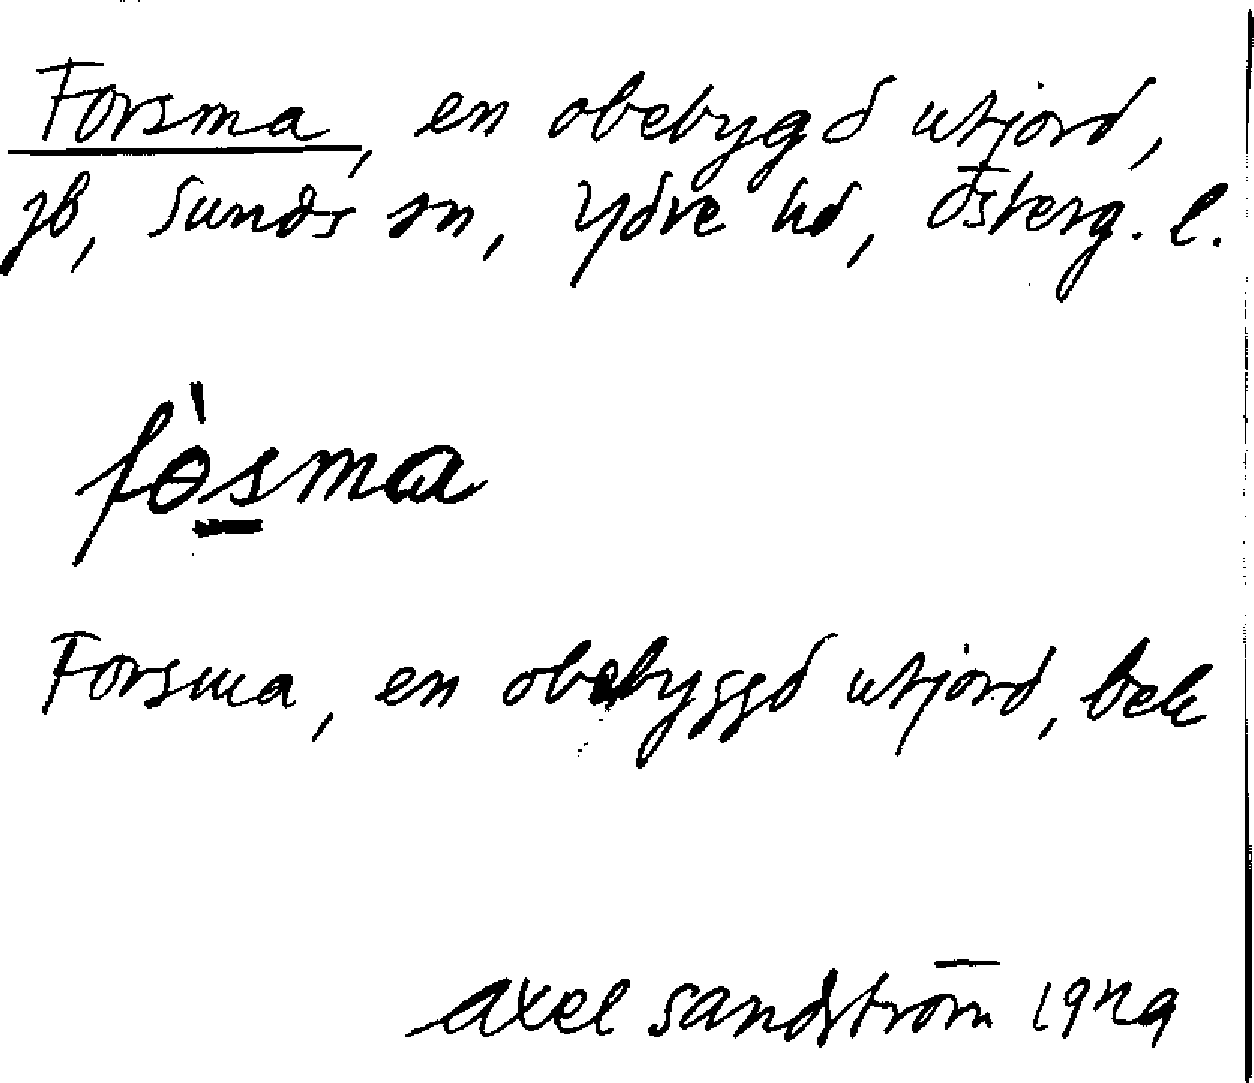 Forsma, en obebygd utjord,
jb, Sunds sn, Ydre hd, Österg. l.
fò̱s̱ma
Forsma, en obebyggd utjord, bek
axel sandström 1929